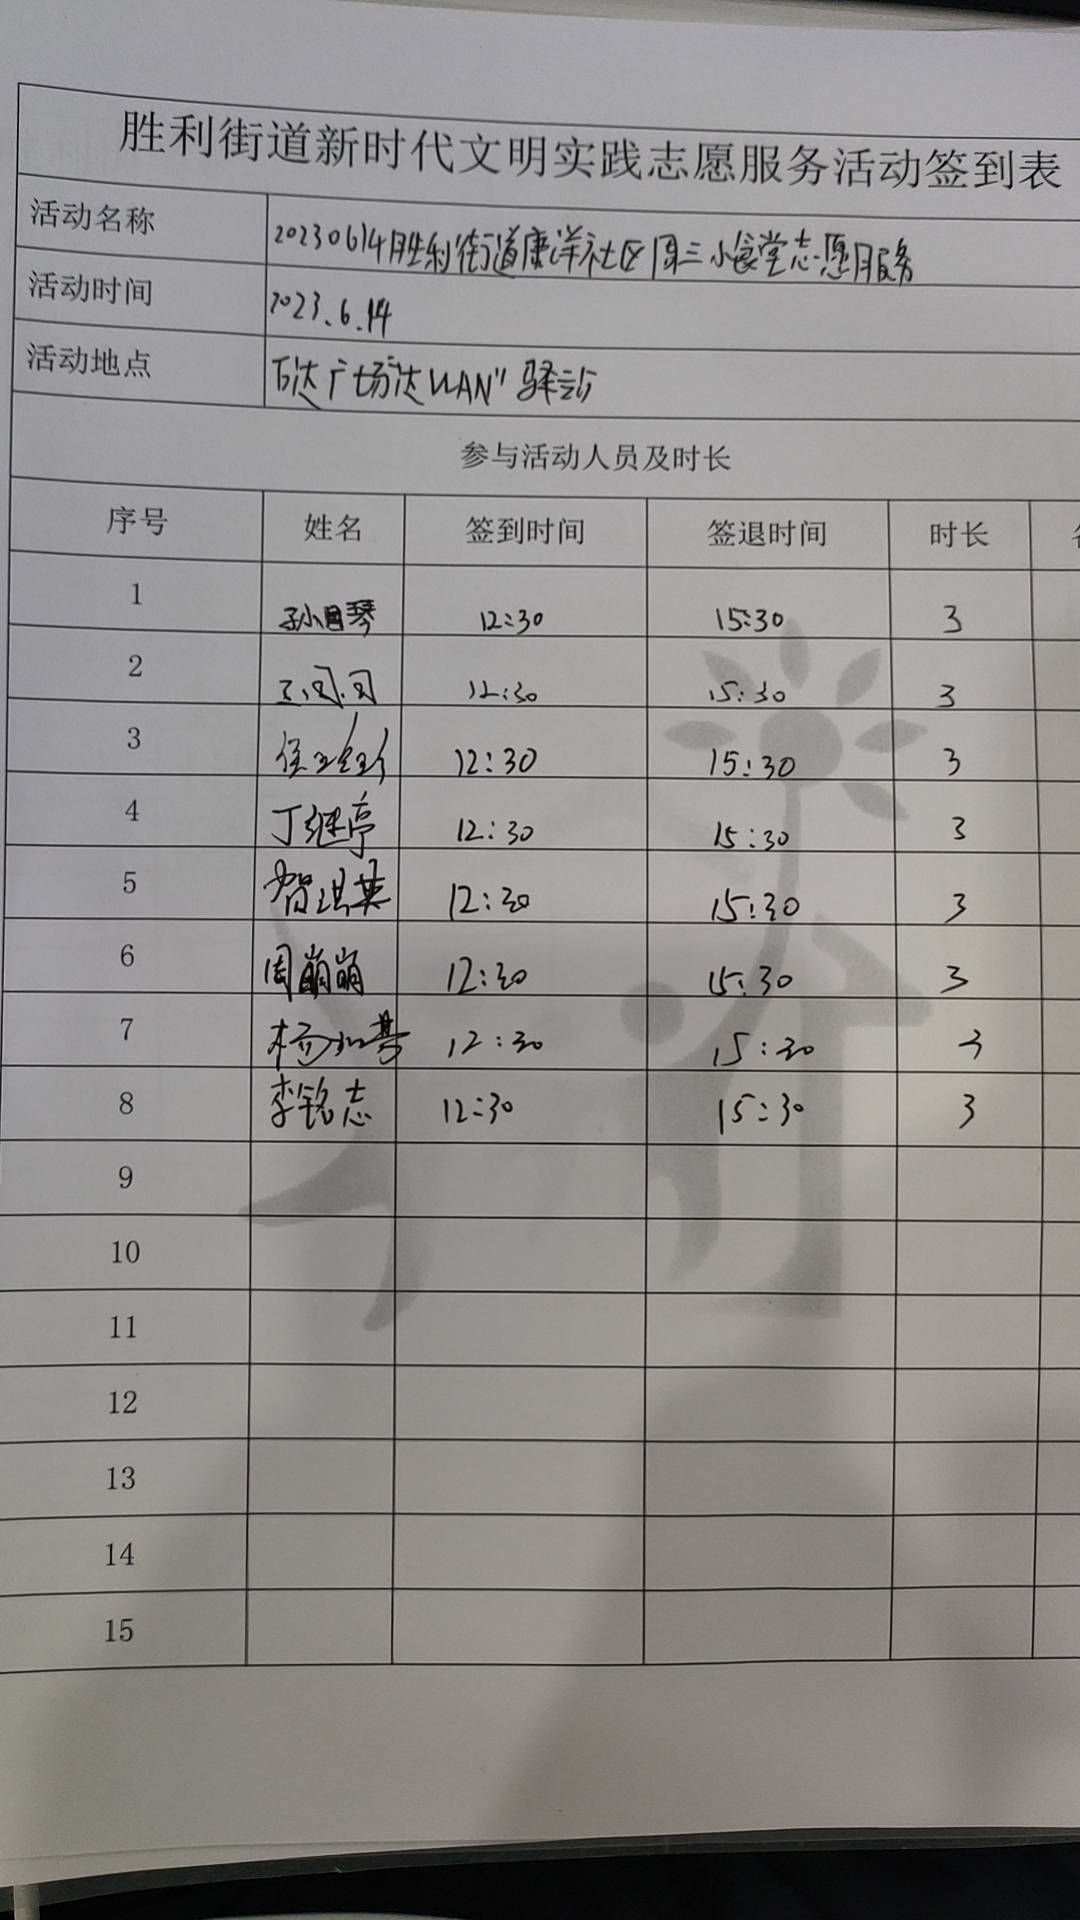 胜利街道新时代文明实践志愿服务活动签到表
活动名称 20230614胜利街道康洋社区周三小食堂志愿服务
活动时间 2023.6.14
活动地点 万达广场"达WAN"驿站
参与活动人员及时长
序号 姓名 签到时间 签退时间 时长
1 孙月琴 12:30 15:30 3
2 12:30 15:30 3
3 12:30 15:30 3
4 丁继亭 12:30 15:30 3
5 智琪英 12:30 15:30 3
6 周萌萌 12:30 15:30 3
7 杨 12:30 15:30 3
8 李铭志 12:30 15:30 3
9
10
11
12
13
14
15